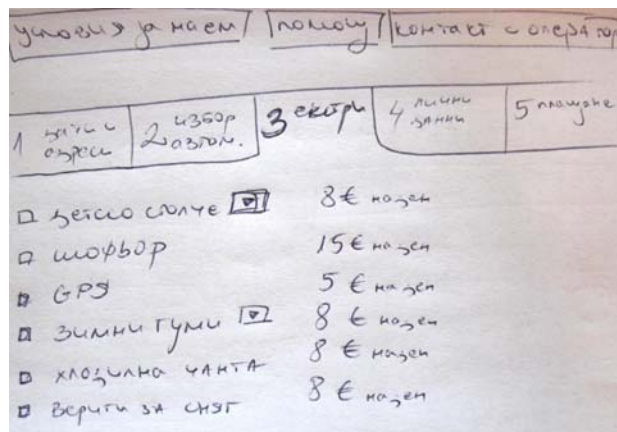 условия за наем помощ контакт с оператор
1 дати и адреси 2 избор автом. 3 екстри 4 лични данни 5 плащане
детско столче 8 € на ден
шофьор 15 € на ден
GPS 5 € на ден
зимни гуми 8 € на ден
хладилна чанта 8 € на ден
вериги за сняг 8 € на ден